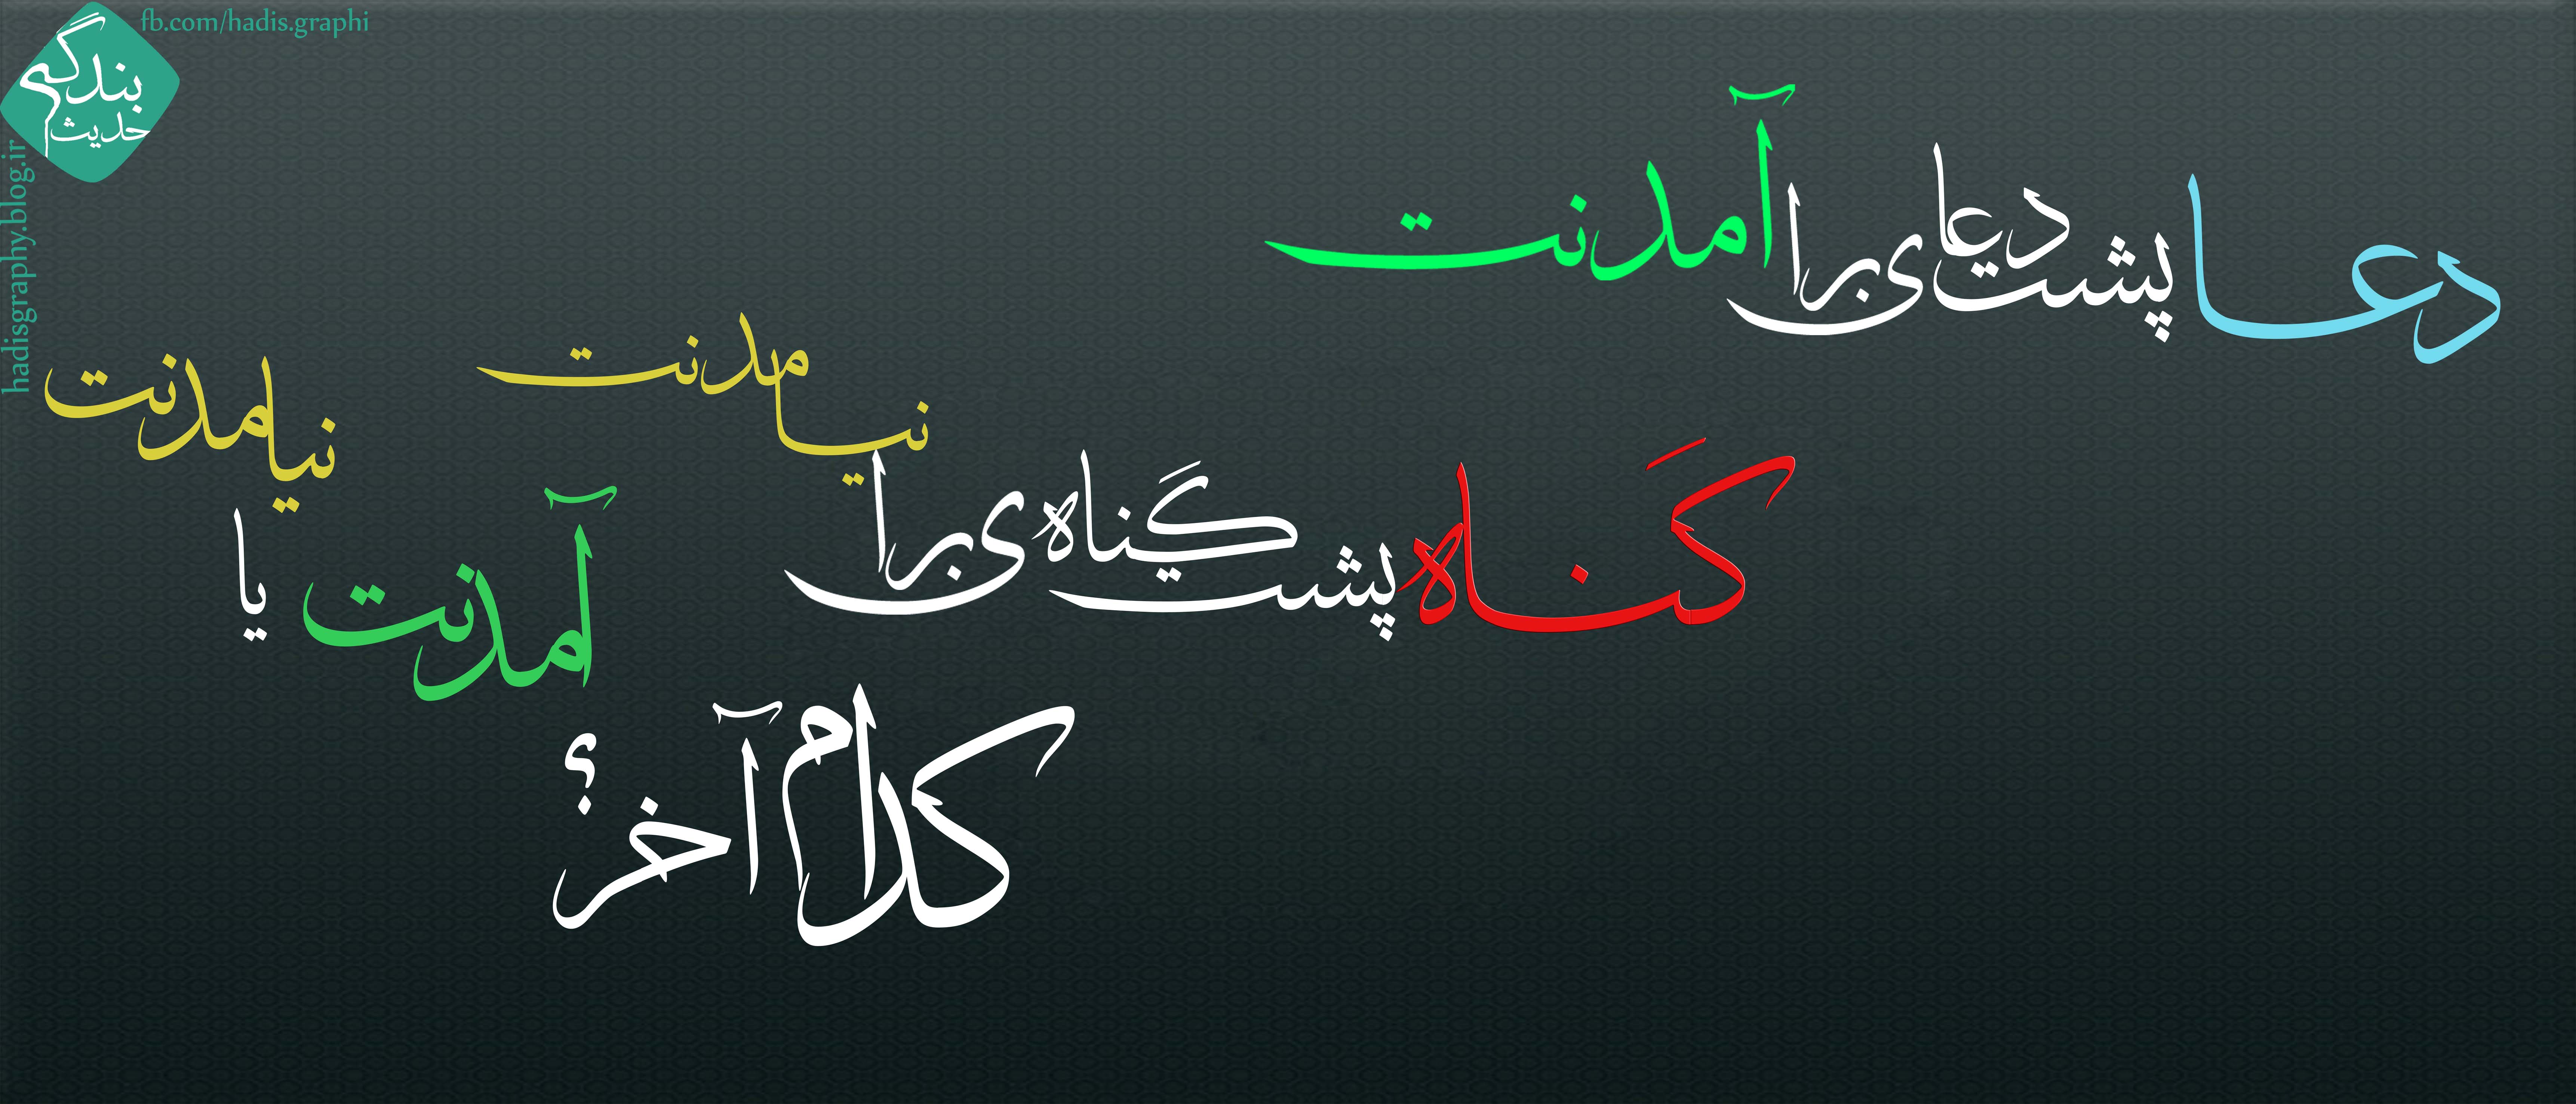 fb.com/hadis.graphi
بندگی
حدیث
hadisgraphy.blog.ir
دعا پشت دعا برای آمدنت
گناه پشت گناه برای نیامدنت
کدام آخر؟
آمدنت یا نیامدنت